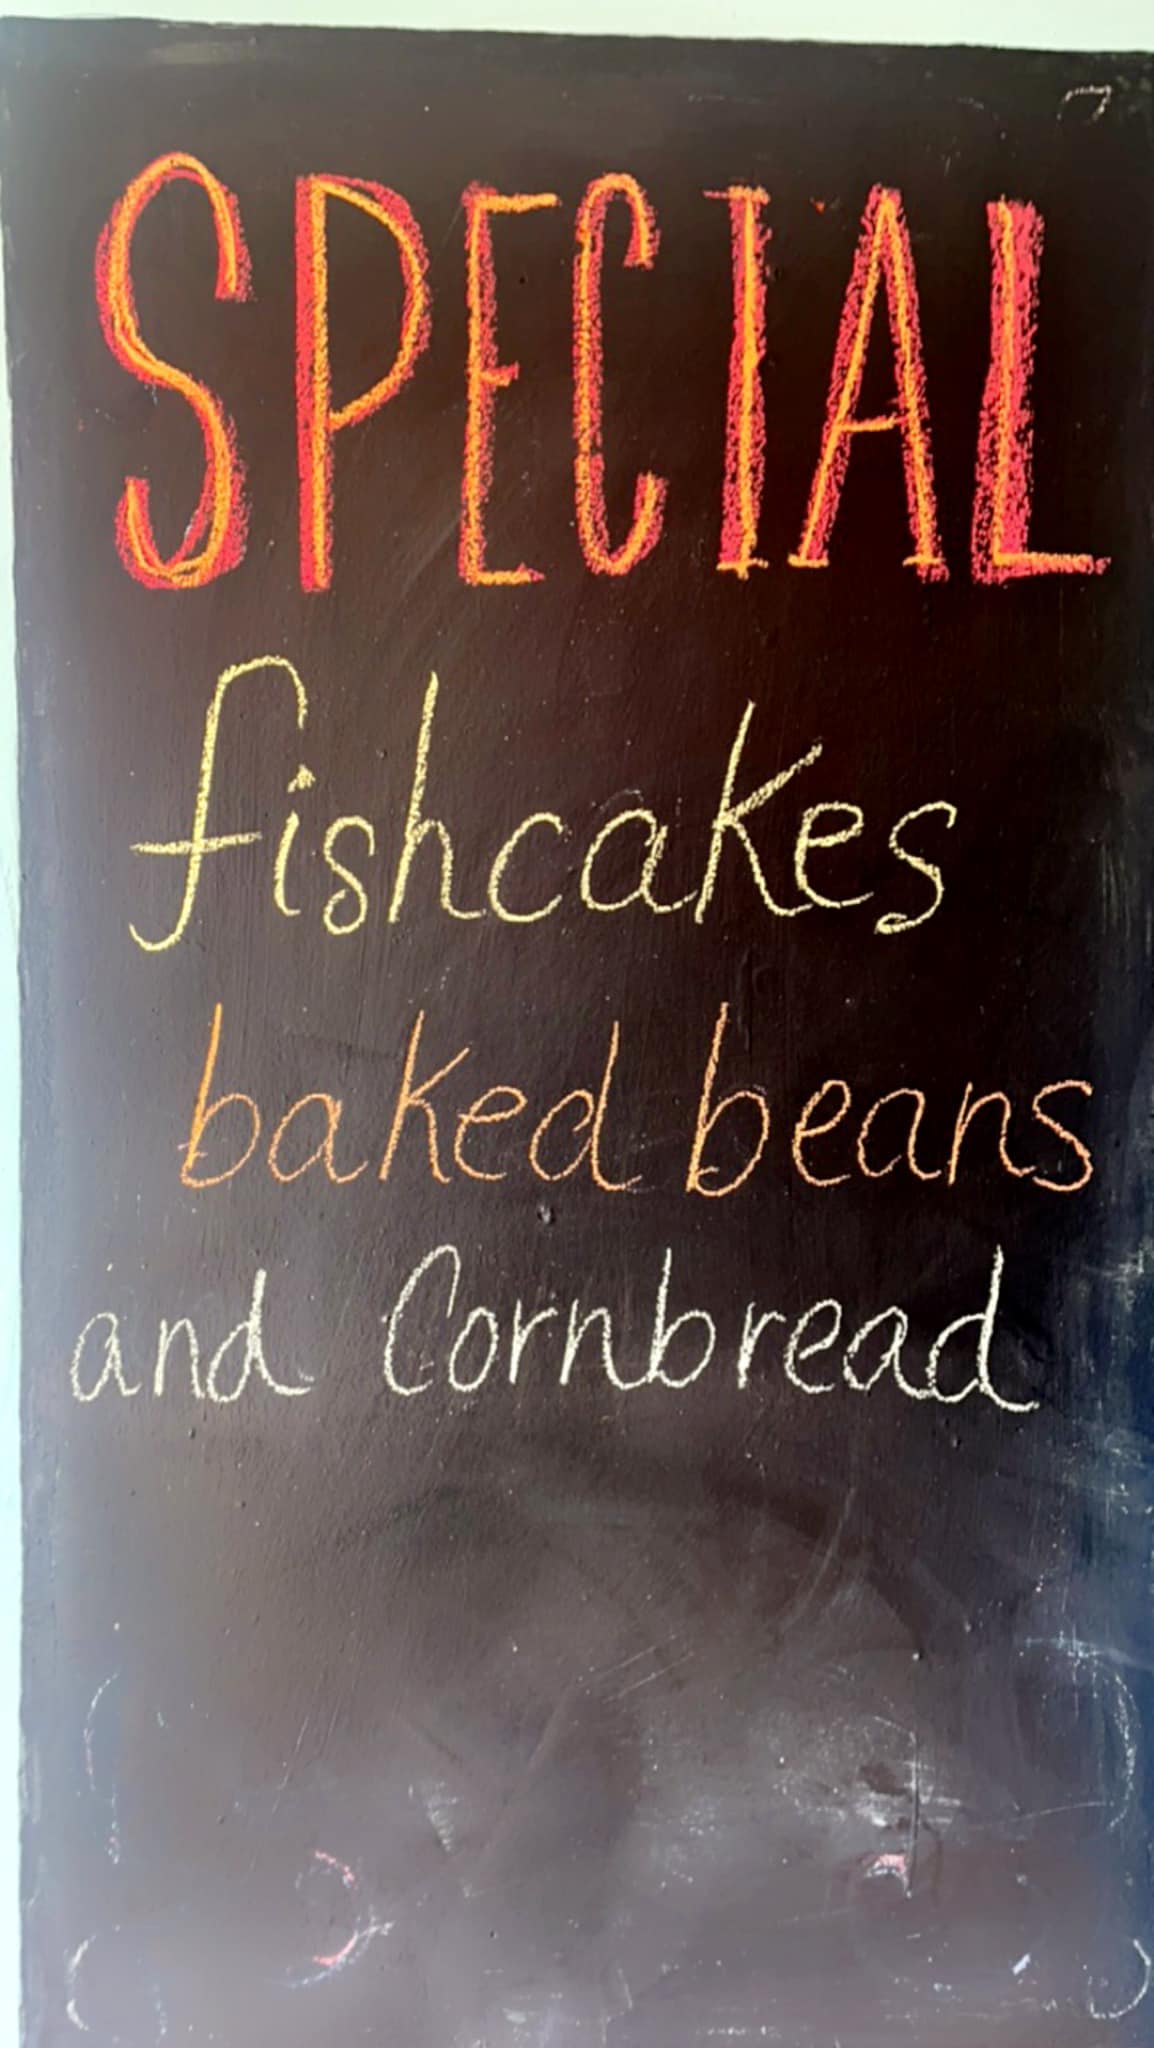 SPECIAL
fishcakes
baked beans
and Cornbread